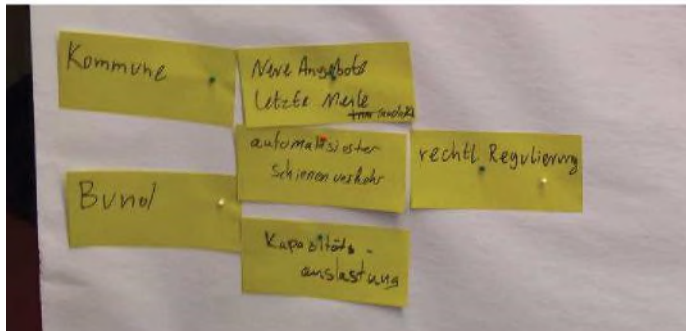 Kommune
Neue Angebote
Letzte Meile
automatisierter
Schienenverkehr
rechtl. Regulierung
Bund
Kapazitäts-
auslastung